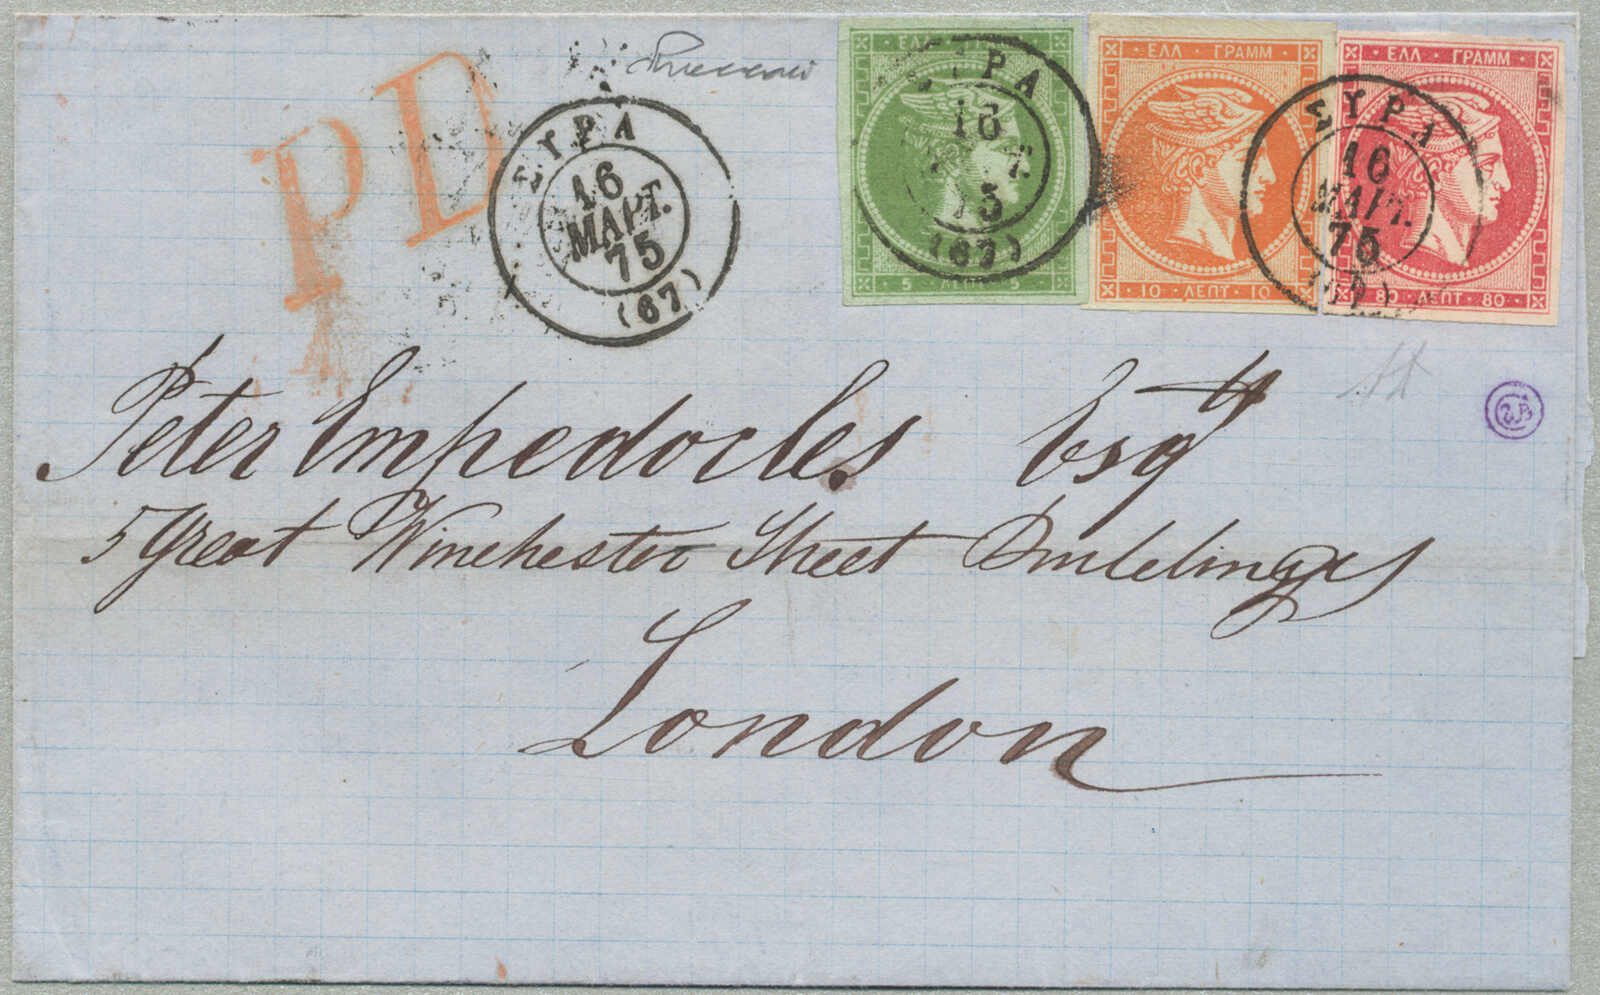 PD
ΣΥΡΑ
16
ΜΑΡΤ.
75
(67)
ΕΛΛ ΓΡΑΜΜ
5 ΛΕΠΤ 5
ΥΡΑ
16
75
(67)
ΕΛΛ · ΓΡΑΜΜ
10 · ΛΕΠΤ · 10
ΕΛΛ · ΓΡΑΜΜ
80 · ΛΕΠΤ · 80
ΣΥΡΑ
16
ΜΑΡΤ.
75
(67)
Peter Empedocles. Esqre
5 Great Winchester Street Buildings
London